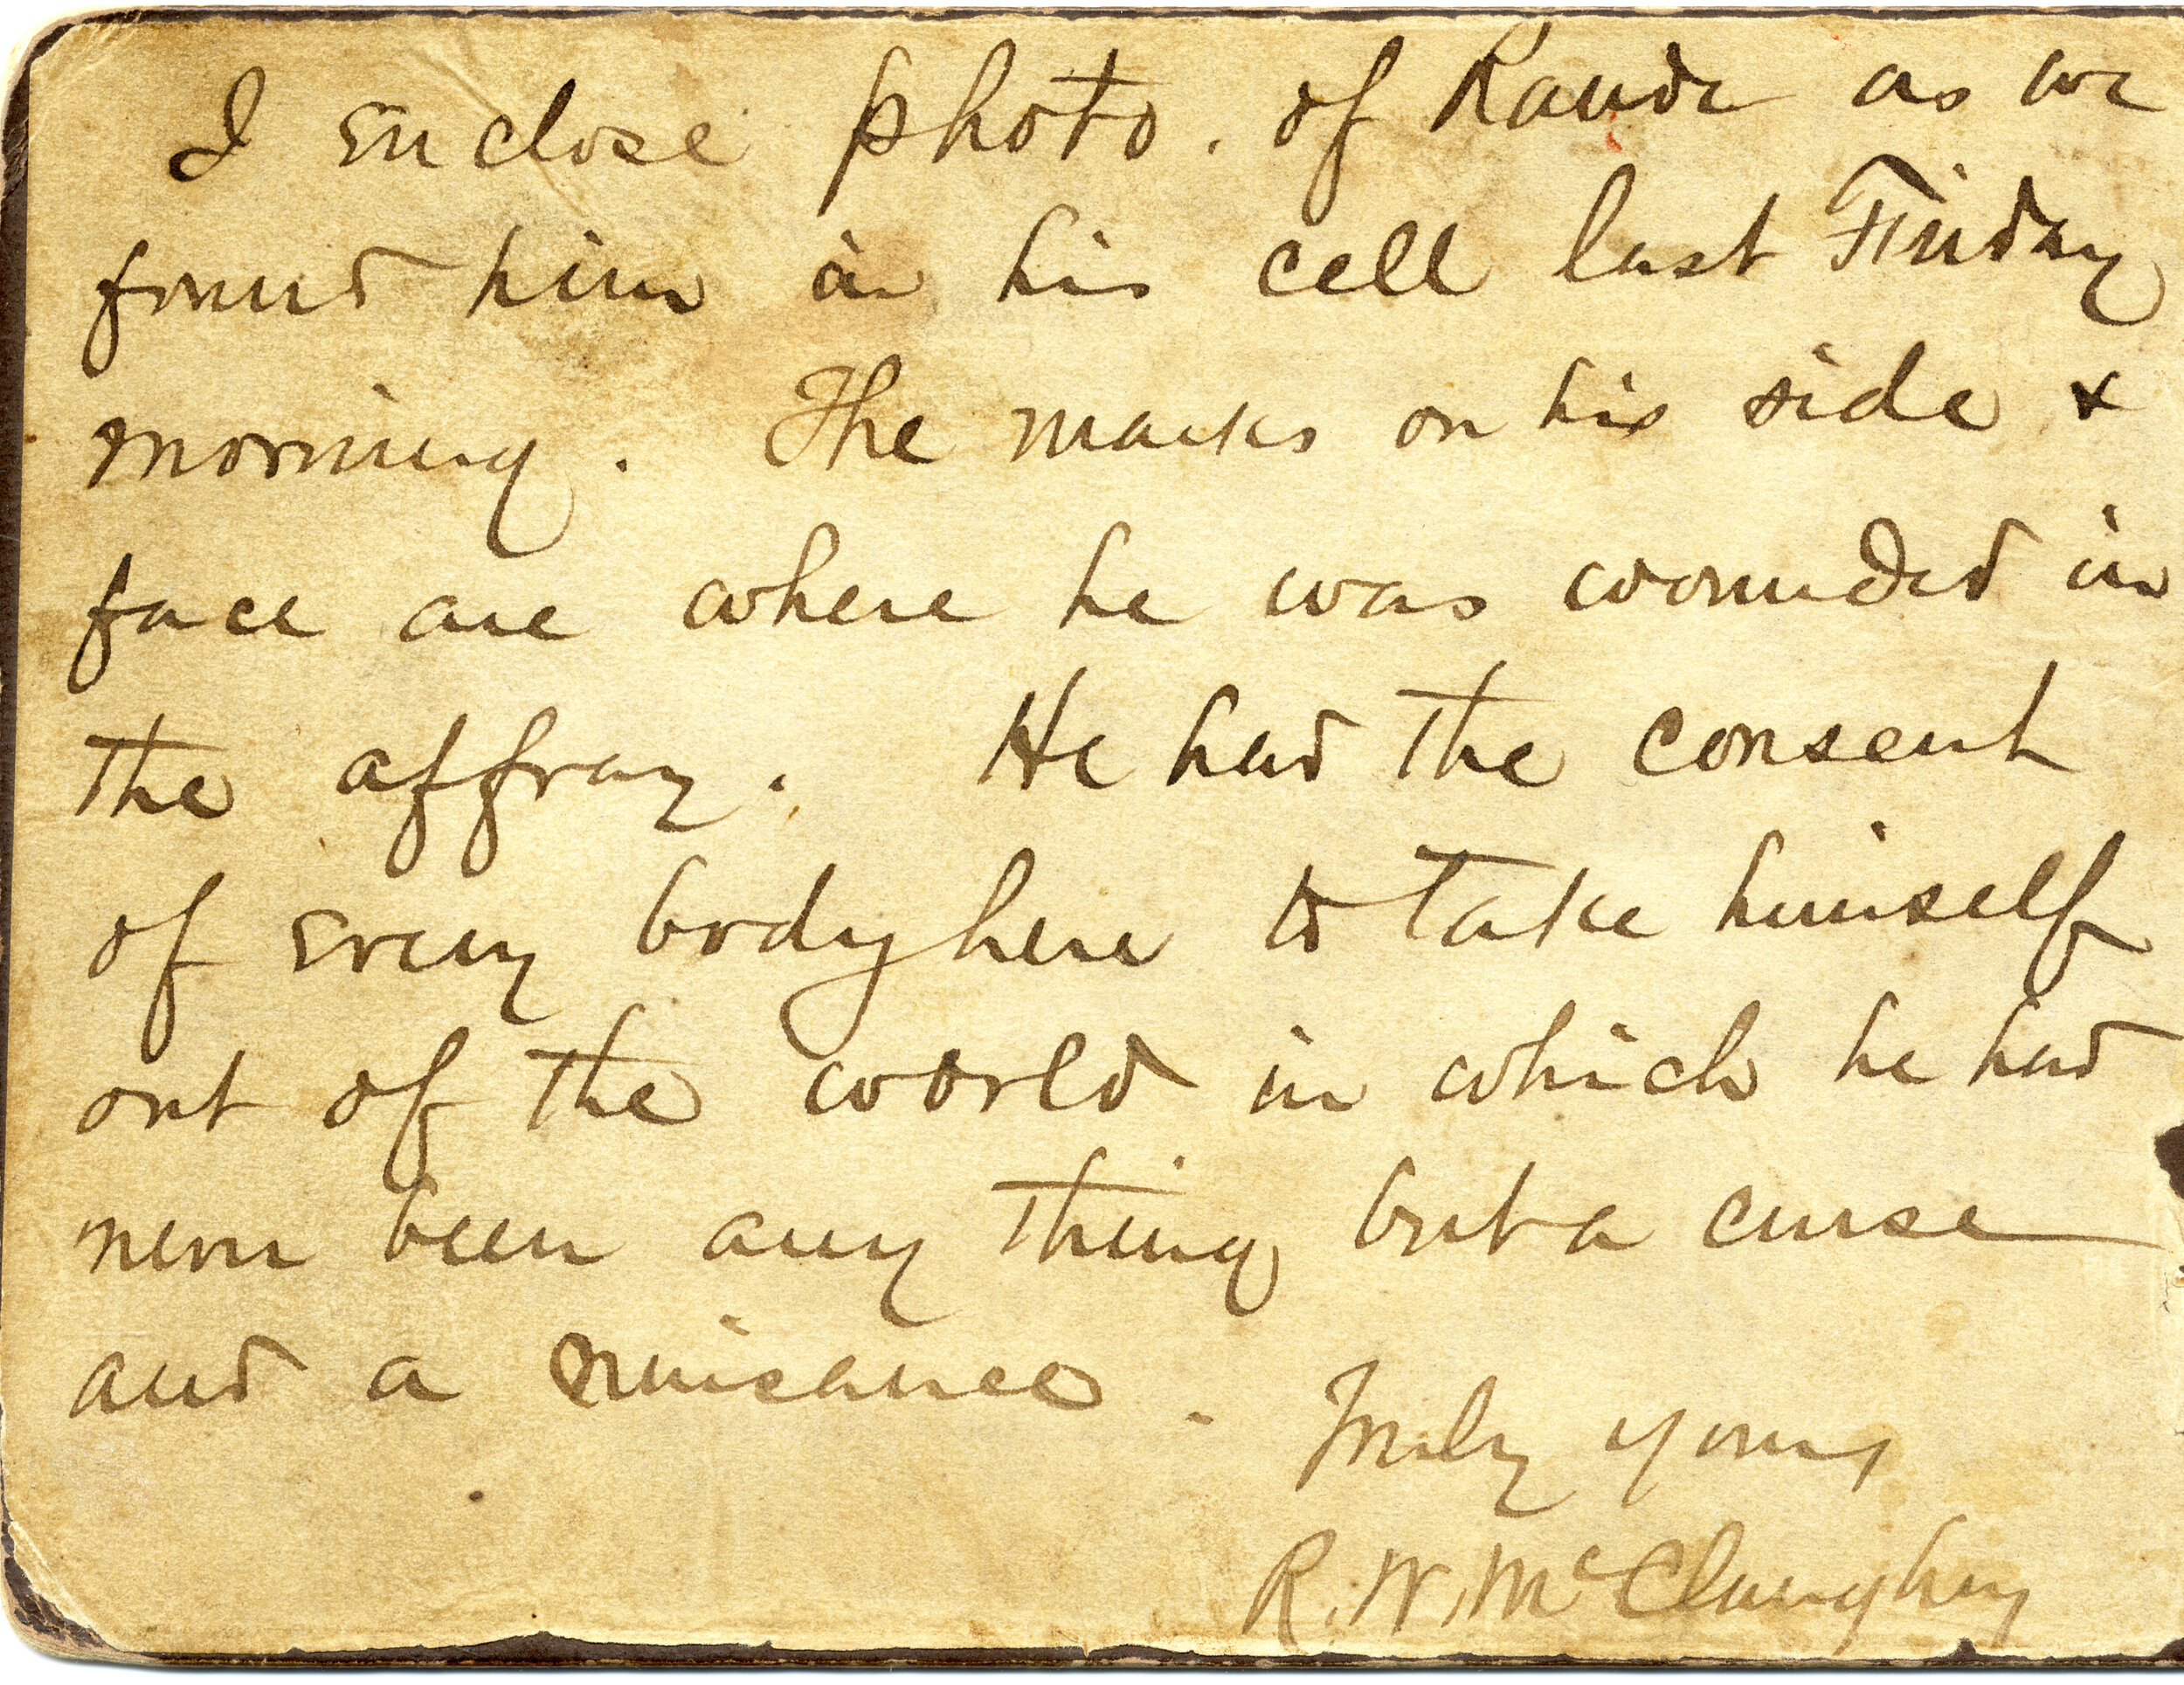 I enclose photo. of Rande as we
found him in his cell last Friday
morning. The marks on his side &
face are where he was wounded in
the affray. He had the consent
of every body here to take himself
out of the world in which he had
never been any thing but a curse
and a nuisance.
Truly yours
R. W. McClaughry